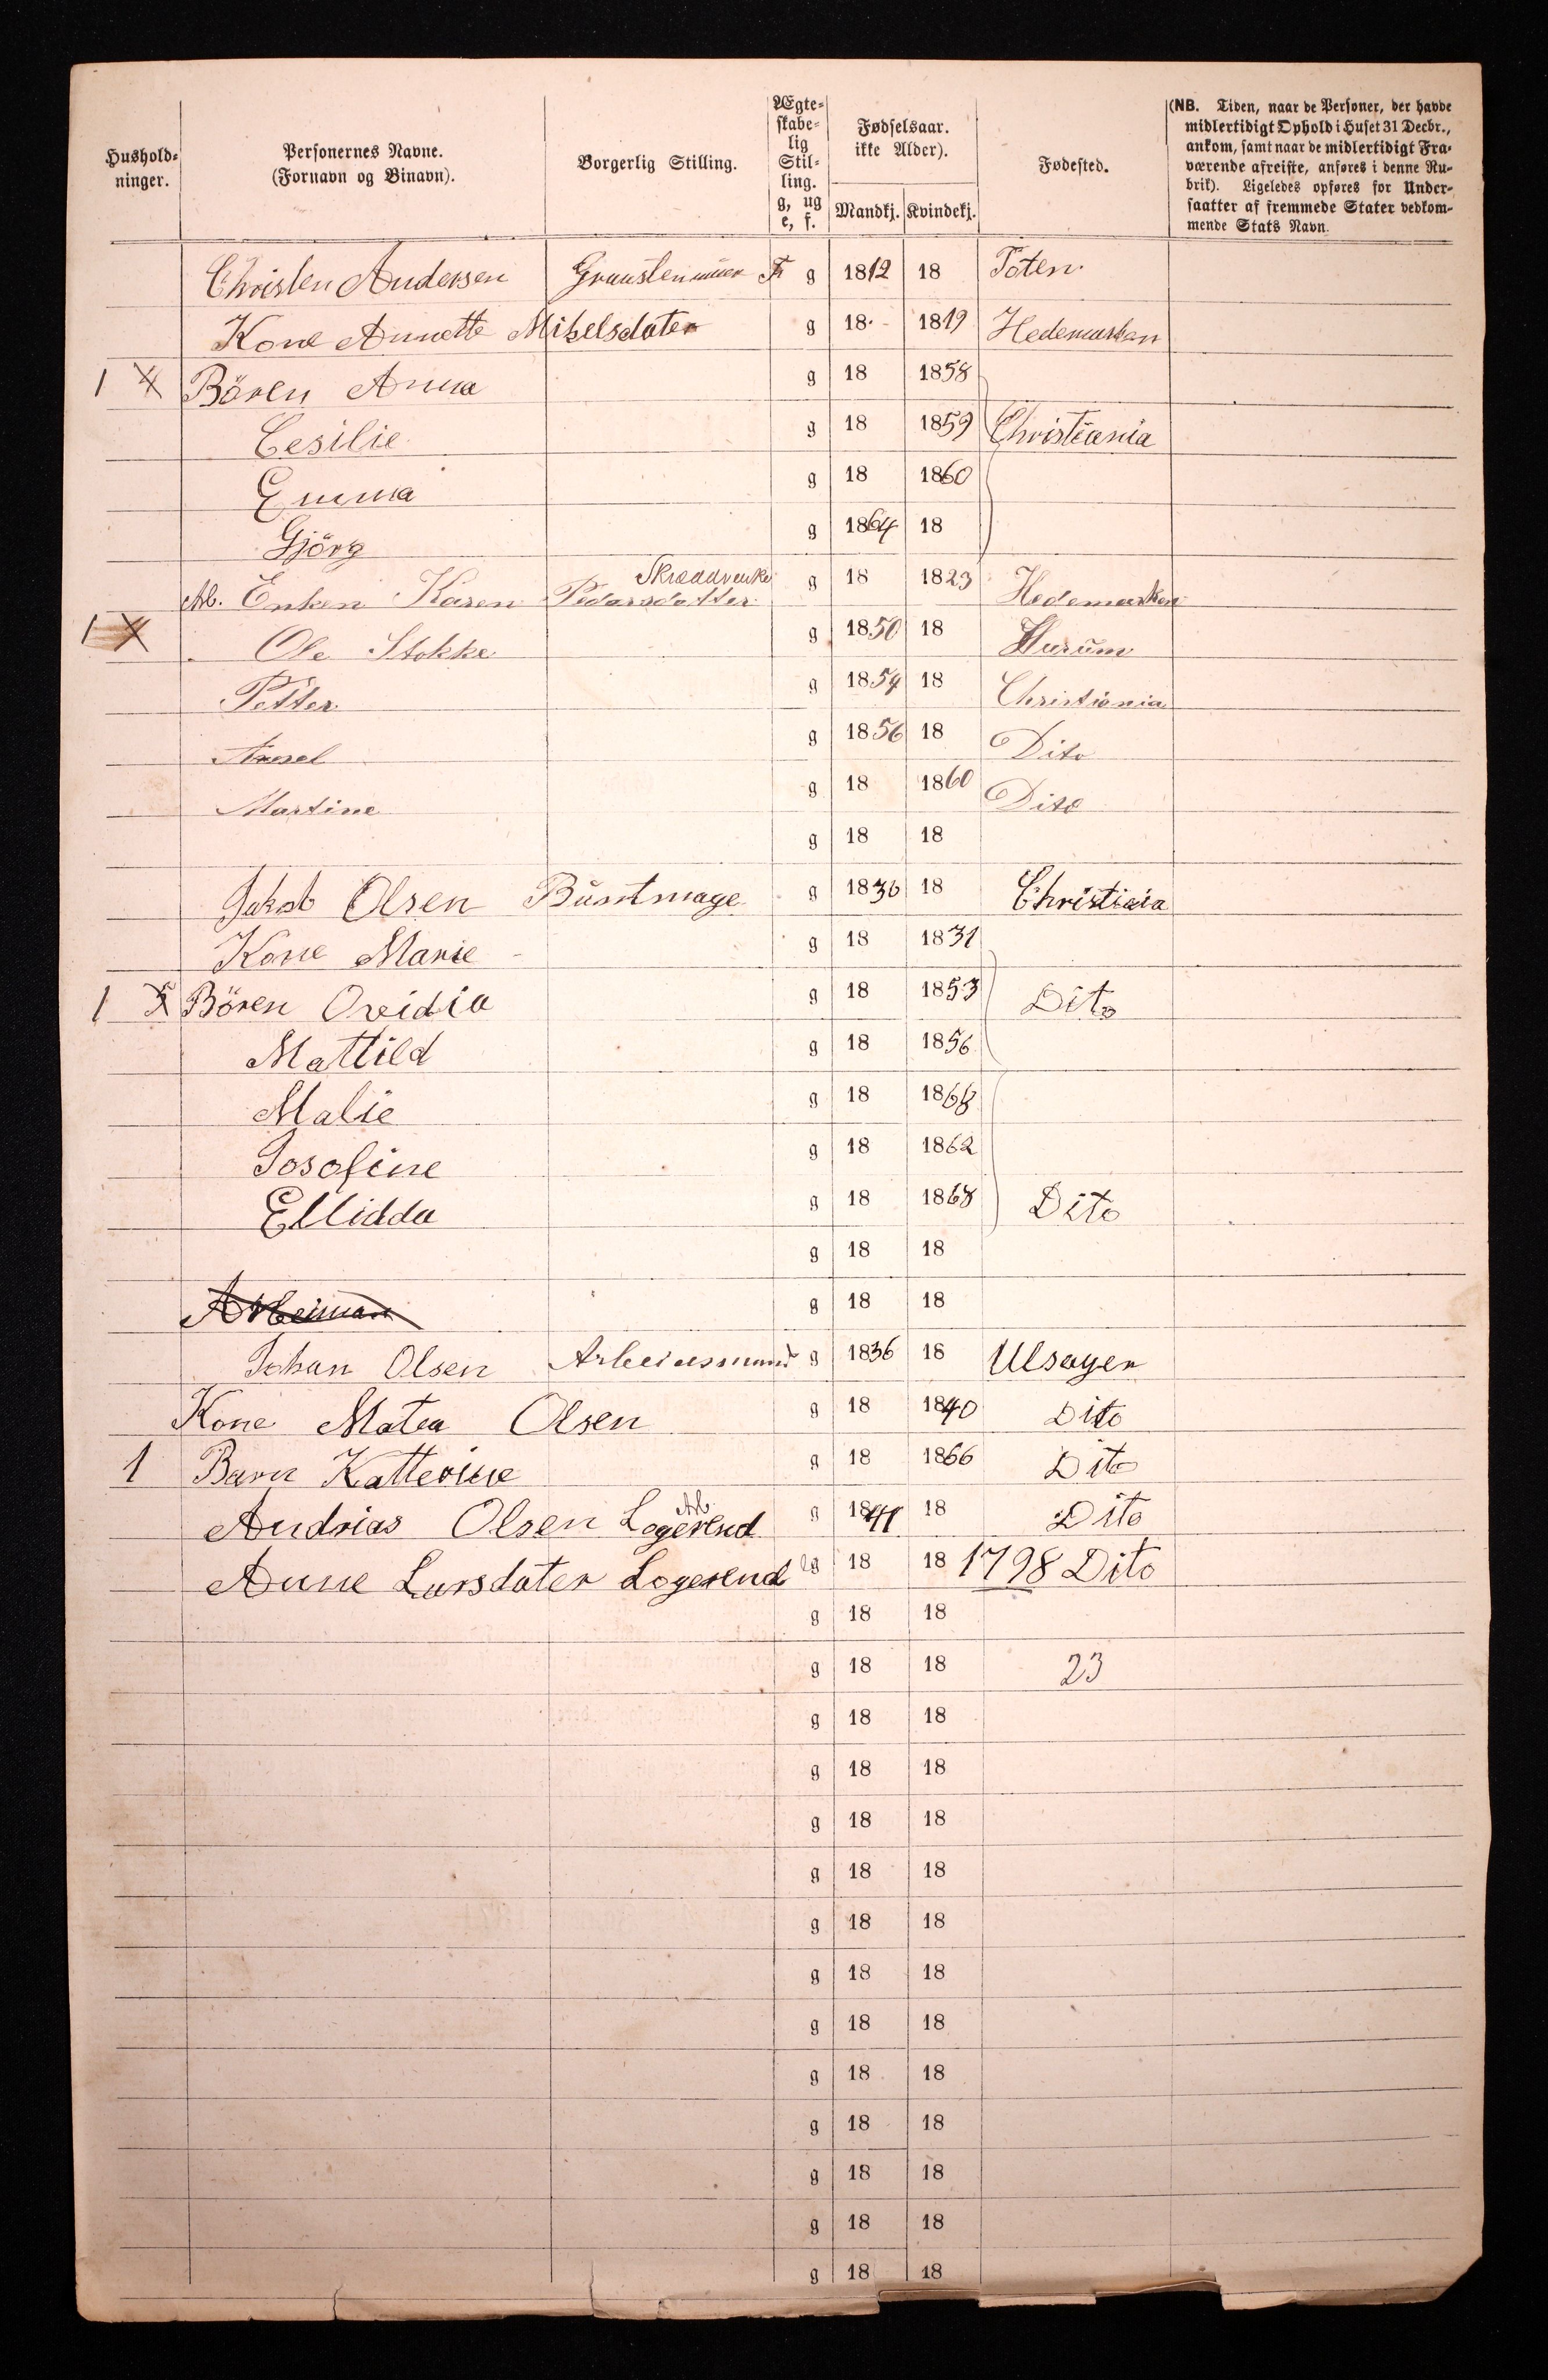 Hushold-
ninger.
Personernes Navne.
(Fornavn og Binavn).
Borgerlig Stilling.
Ægte-
skabe-
lig
Stil-
ling.
g, ug
e, f.
Fødselsaar.
ikke Alder).
Mandkj. Kvindekj.
Fødested.
(NB. Tiden, naar de Personer, der havde
midlertidigt Ophold i Huset 31 Decbr.,
ankom, samt naar de midlertidigt Fra-
værende afreiste, anføres i denne Ru-
brik). Ligeledes opføres for Under-
saatter af fremmede Stater vedkom-
mende Stats Navn.
Christen Andersen g 1812 18 Toten
Kone Annette Mikelsdater g 18 1819 Hedemarken
1 4 Bören Anna g 18 1858
Cesilie g 18 1859 Christiania
Emma g 18 1860
Gjörg g 1864 18
Ab. Enken Karen Pedersdatter g 18 1823 Hedemarken
1 Ole Stokke g 1850 18 Hurum
Petter g 1854 18 Christiania
g 1856 18 Dito
Martine g 18 1860 Dito
g 18 18
Jakob Olsen Buntmage g 1836 18 Christiaia
Kone Marie g 18 1831
1 5 Bören Ovidia g 18 1853 Dito
Mattild g 18 1856
Malie g 18
Josofine g 18 1862
Ellidda g 18 1868 Dito
g 18 18
g 18 18
Johan Olsen Arbeidsmand g 1836 18 Ulsager
Kone Matea Olsen g 18 1840 Dito
1 Barn Katterine g 18 1866 Dito
Ab.
Andrias Olsen Logerend g 1841 18 Dito
Anne Larsdater Logerend g 18 18 1798 Dito
g 18 18
g 18 18 23
g 18 18
g 18 18
g 18 18
g 18 18
g 18 18
g 18 18
g 18 18
g 18 18
g 18 18
g 18 18
g 18 18
g 18 18